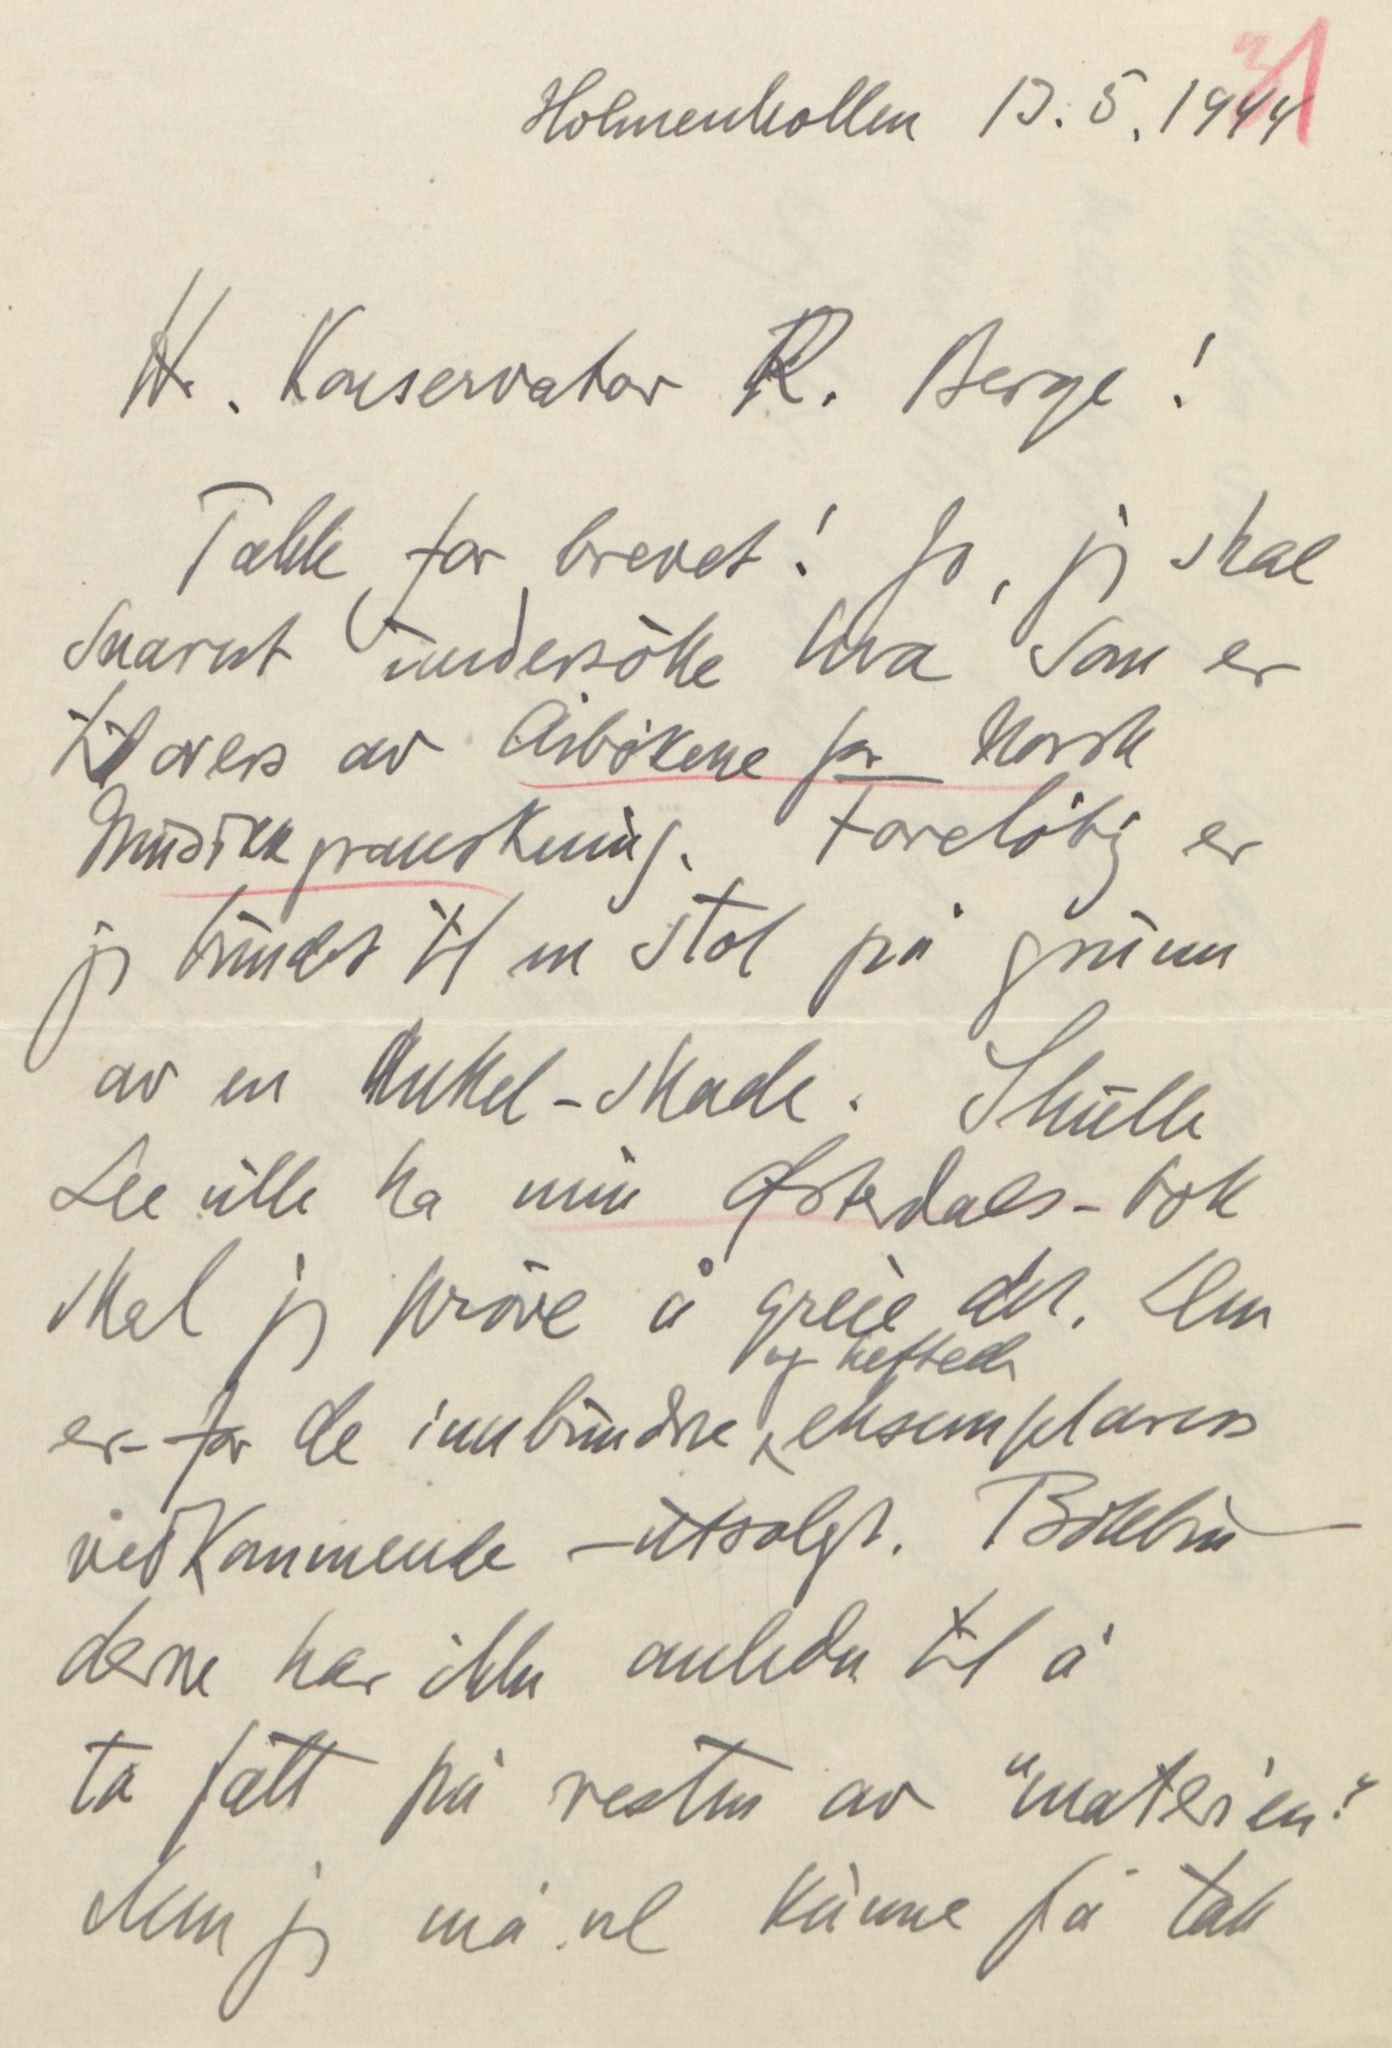 31
Holmenkollen 13.5.1944
Hr. Konservator R. Berge!
Takk for brevet! Jo, jeg skal
snarest undersöke hva som er
til overs av Årbökene for Norsk
Musikkgranskning. Forelöbig er
jeg bundet til en stol på grunn
av en Ankel-skade. Skulle
De ville ha min Österdals-bok
skal jeg pröve å greie det. Den
og heftede
er - for de innbundne eksemplarers
vedkommende - utsolgt. Bokbin-
derne har ikke anledn til å
ta fatt på resten av "materien".
Men jeg må vel kunne få tak